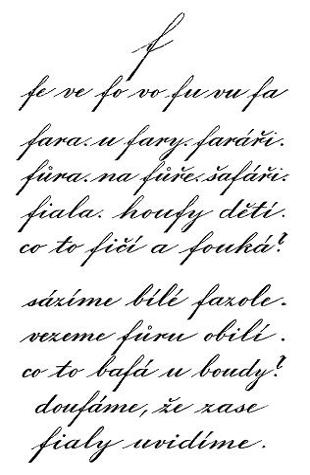 f
fe ve fo vo fu vu fa
fara. u fary. faráři.
fůra. na fůře. šafáři.
fiala. houfy dětí.
co to fičí a fouká?
sázíme bílé fazole.
vezeme fůru obilí.
co to bafá u boudy?
doufáme, že zase
fialy uvidíme.